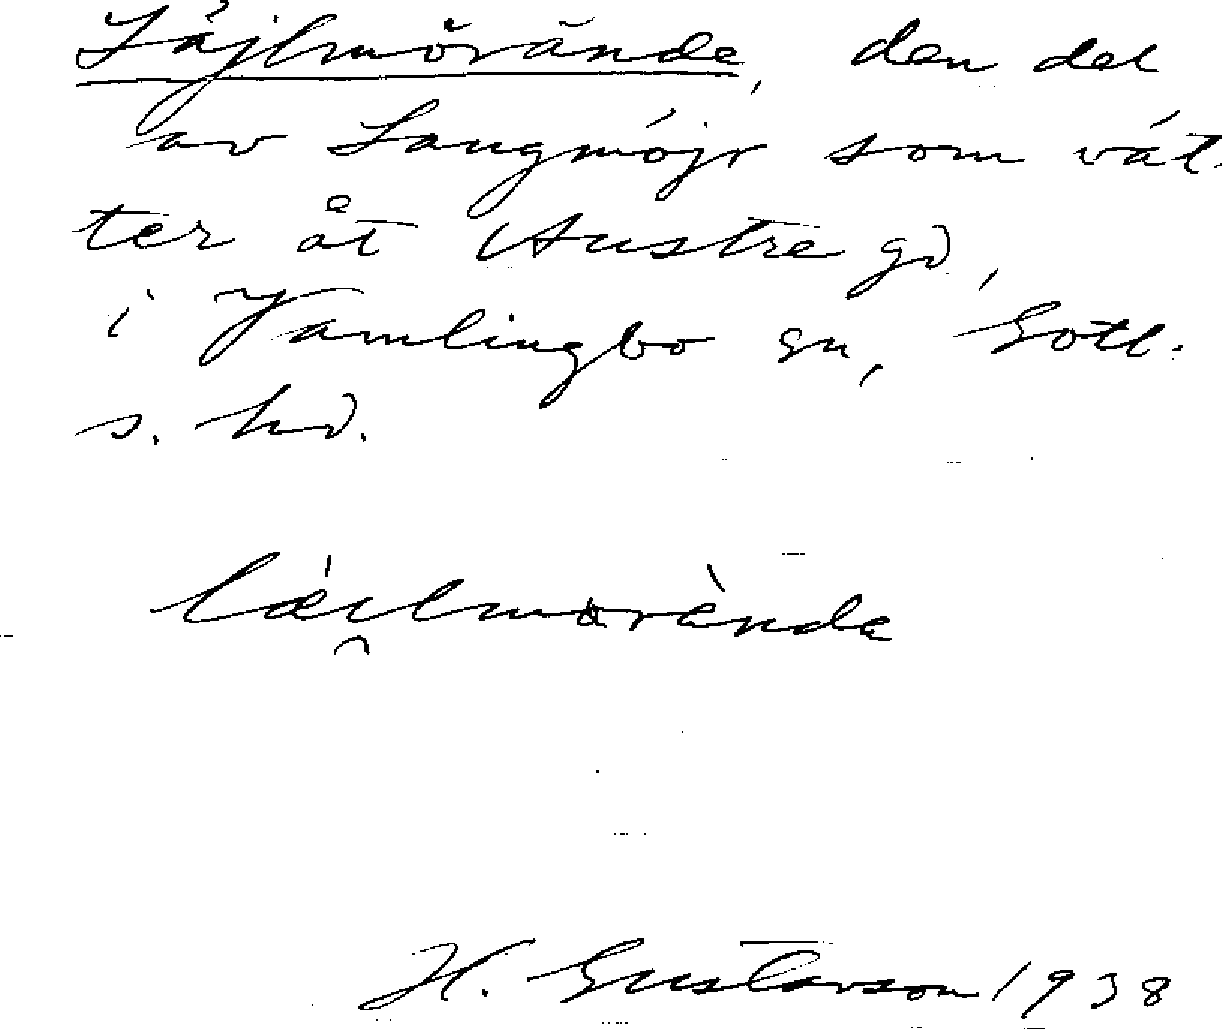 Läjlmŏrände, den del
av Langmøjr som vät-
ter åt Austre gd,
i Vamlingbo sn, Gotl.
s. hd.
læi̯lmɑrànda
H. Gustavson 1938